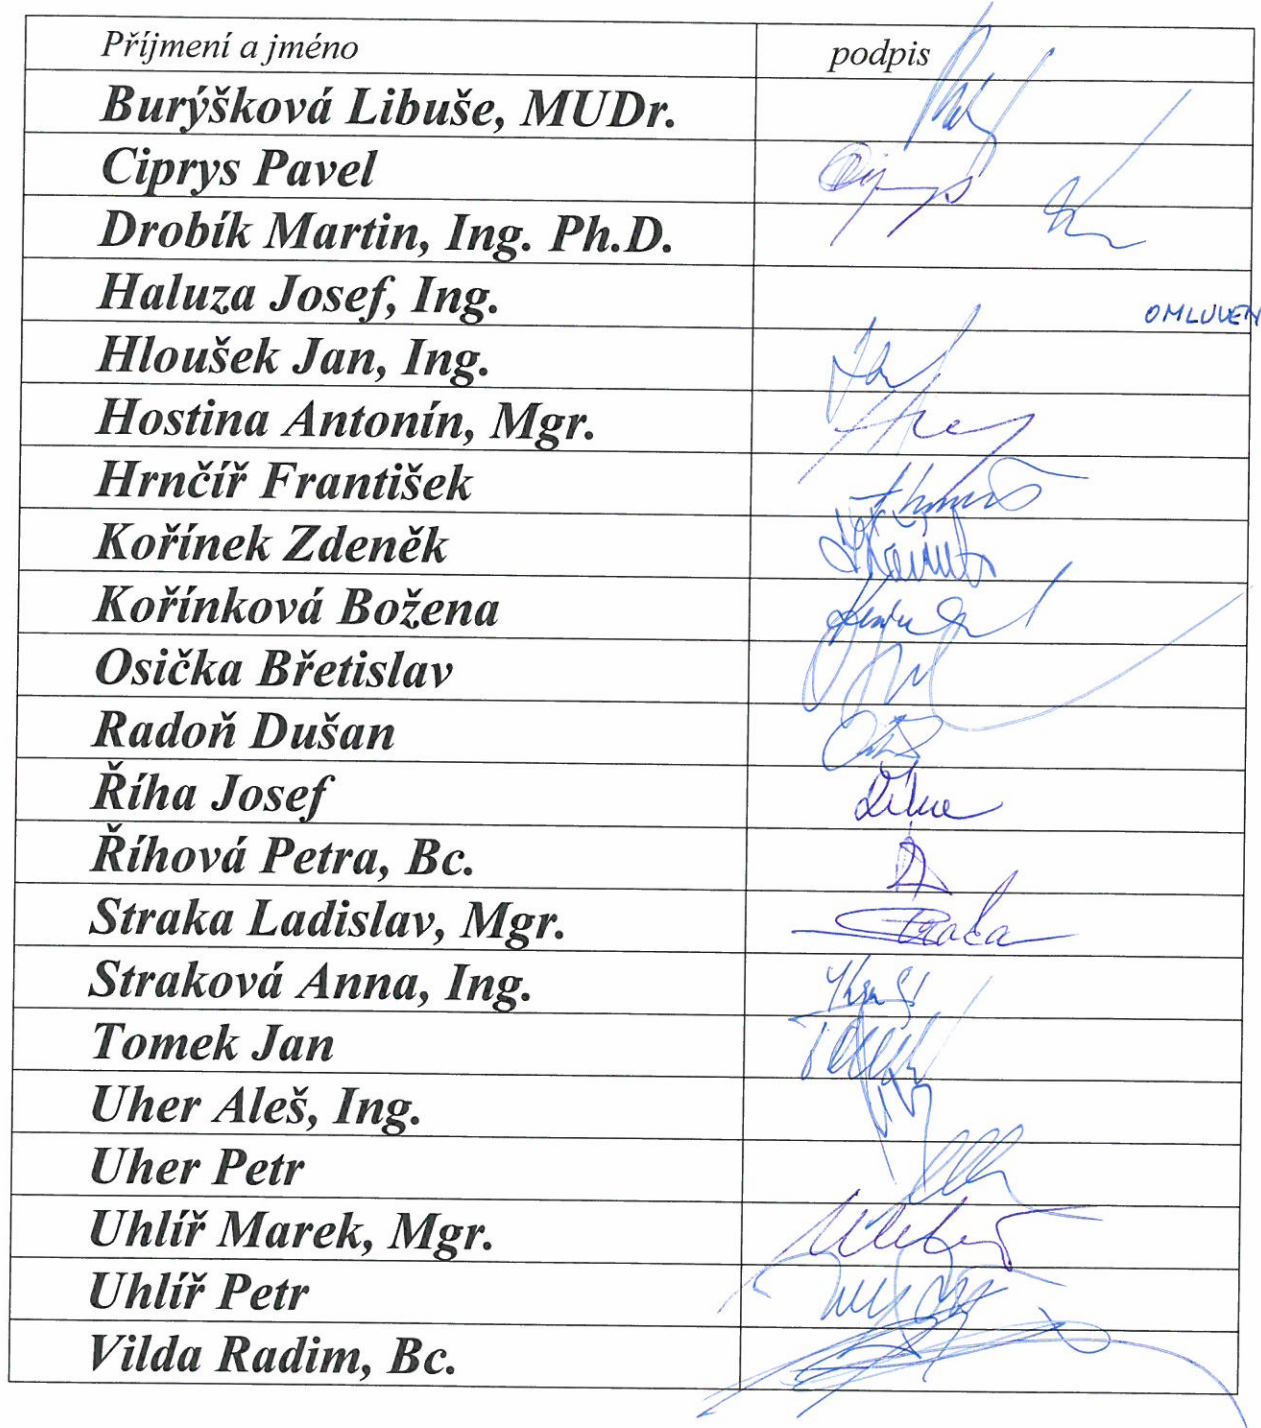 Příjmení a jméno podpis
Burýšková Libuše, MUDr.
Ciprys Pavel Ciprys
Drobík Martin, Ing. Ph.D.
Haluza Josef, Ing. OMLUVEN
Hloušek Jan, Ing.
Hostina Antonín, Mgr.
Hrnčíř František
Kořínek Zdeněk
Kořínková Božena
Osička Břetislav
Radoň Dušan
Říha Josef Říha
Říhová Petra, Bc.
Straka Ladislav, Mgr. Straka
Straková Anna, Ing.
Tomek Jan Tomek
Uher Aleš, Ing.
Uher Petr
Uhlíř Marek, Mgr.
Uhlíř Petr
Vilda Radim, Bc.